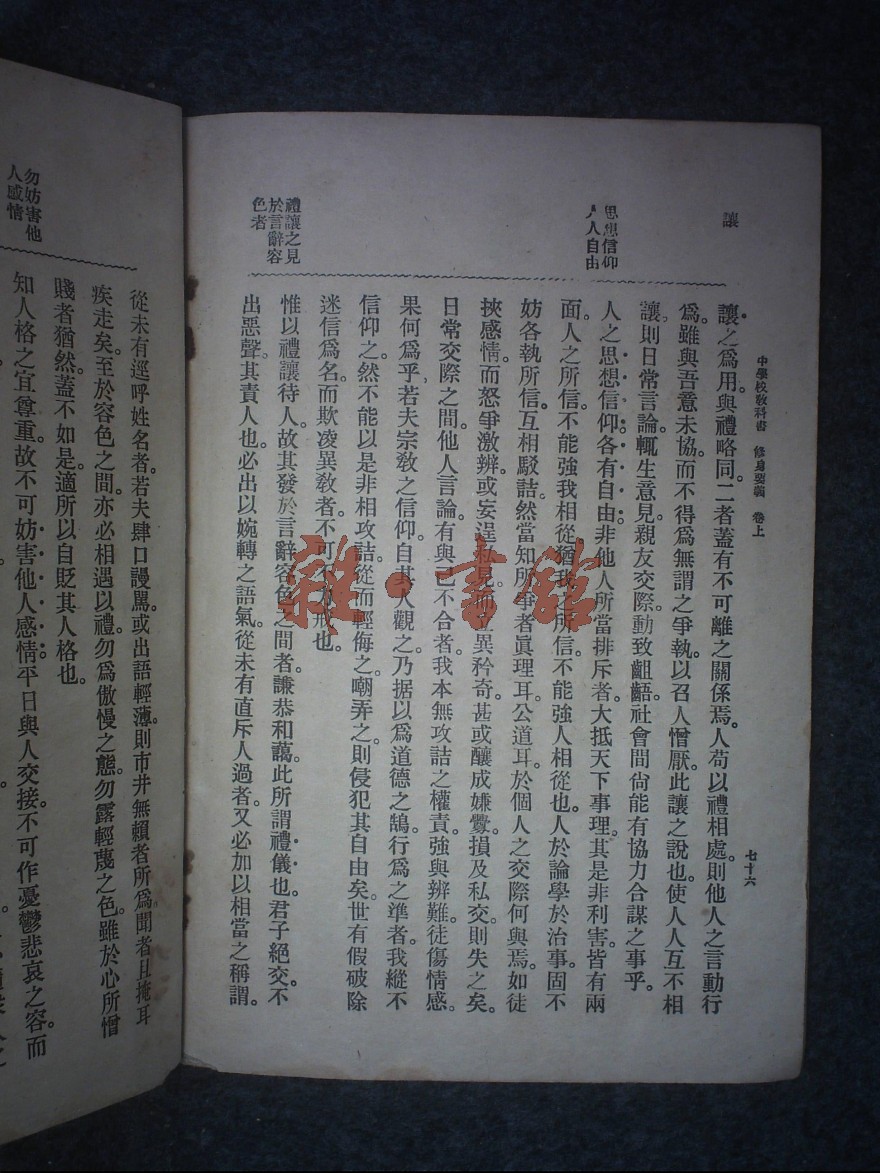 中學校教科書 修身要義 卷上
七十六
讓
讓之爲用。與禮略同。二者蓋有不可離之關係焉。人苟以禮相處。則他人之言動行
爲。雖與吾意未協。而不得爲無謂之爭執。以召人憎厭。此讓之說也。使人人互不相
讓。則日常言論。輒生意見。親友交際。動致齟齬。社會間尙能有協力合謀之事乎。
思想信仰
人人自由
人之思想信仰。各有自由。非他人所當排斥者。大抵天下事理。其是非利害。皆有兩
面。人之所信。不能強我相從。猶我之所信。不能強人相從也。人於論學於治事。固不
妨各執所信。互相駁詰。然當知所爭者眞理耳。公道耳。於個人之交際何與焉。如徒
挾感情。而怒爭激辨。或妄逞私見。而立異矜奇。甚或釀成嫌釁。損及私交。則失之矣。
日常交際之間。他人言論。有與己不合者。我本無攻詰之權責。強與辨難。徒傷情感。
果何爲乎。若夫宗敎之信仰。自其人觀之。乃据以爲道德之鵠。行爲之準者。我縱不
信仰之。然不能以是非相攻詰。從而輕侮之。嘲弄之。則侵犯其自由矣。世有假破除
迷信爲名。而欺凌異敎者。不可不 戒也。
禮讓之見
於言辭容
色者
惟以禮讓待人。故其發於言辭容色之間者。謙恭和藹。此所謂禮儀也。君子絕交。不
出惡聲。其責人也。必出以婉轉之語氣。從未有直斥人過者。又必加以相當之稱謂。
從未有逕呼姓名者。若夫肆口謾罵。或出語輕薄。則市井無賴者所爲。聞者且掩耳
疾走矣。至於容色之間。亦必相遇以禮。勿爲傲慢之態。勿露輕蔑之色。雖於心所憎
賤者猶然。蓋不如是。適所以自貶其人格也。
勿妨害他
人感情
知人格之宜尊重。故不可妨害他人感情。平日與人交接。不可作憂鬱悲哀之容。而
雜·書館